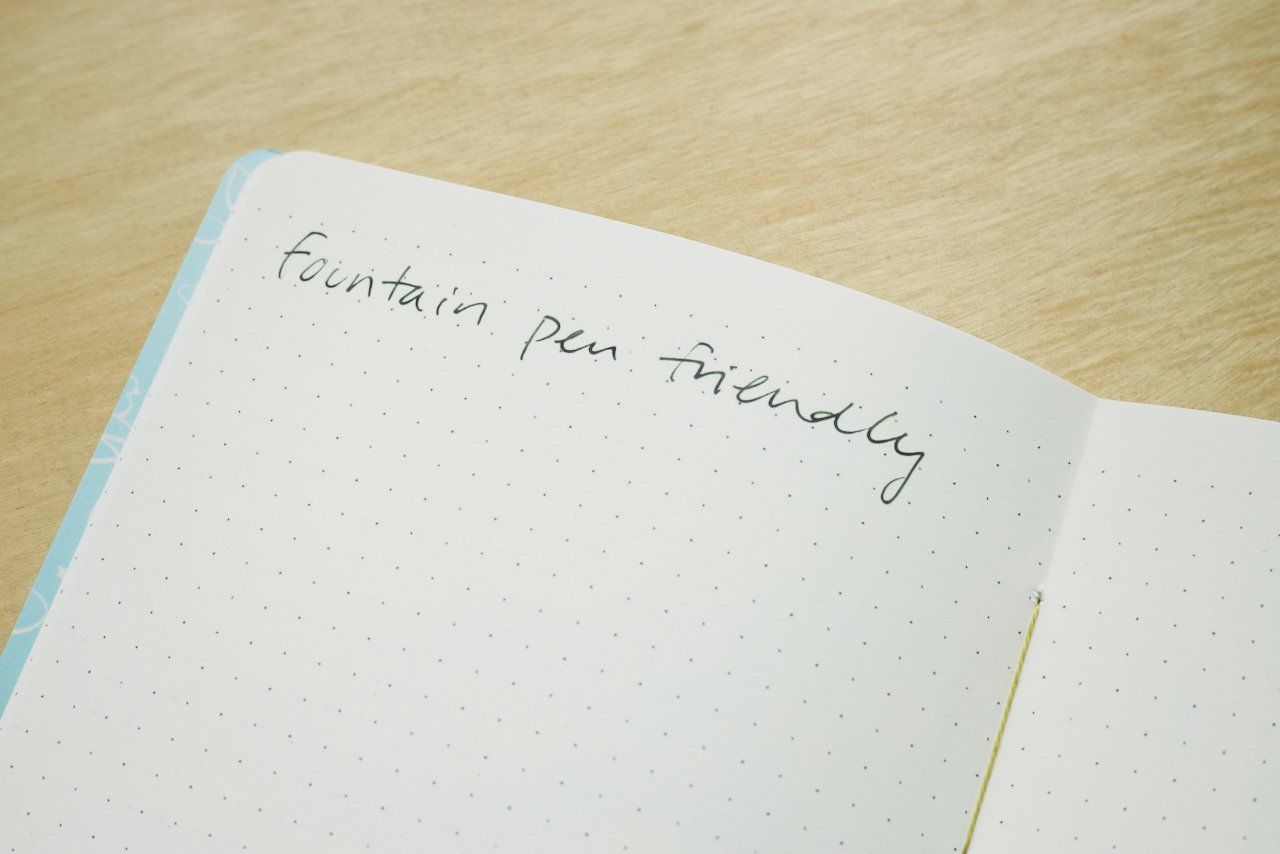 Fountain pen friendly